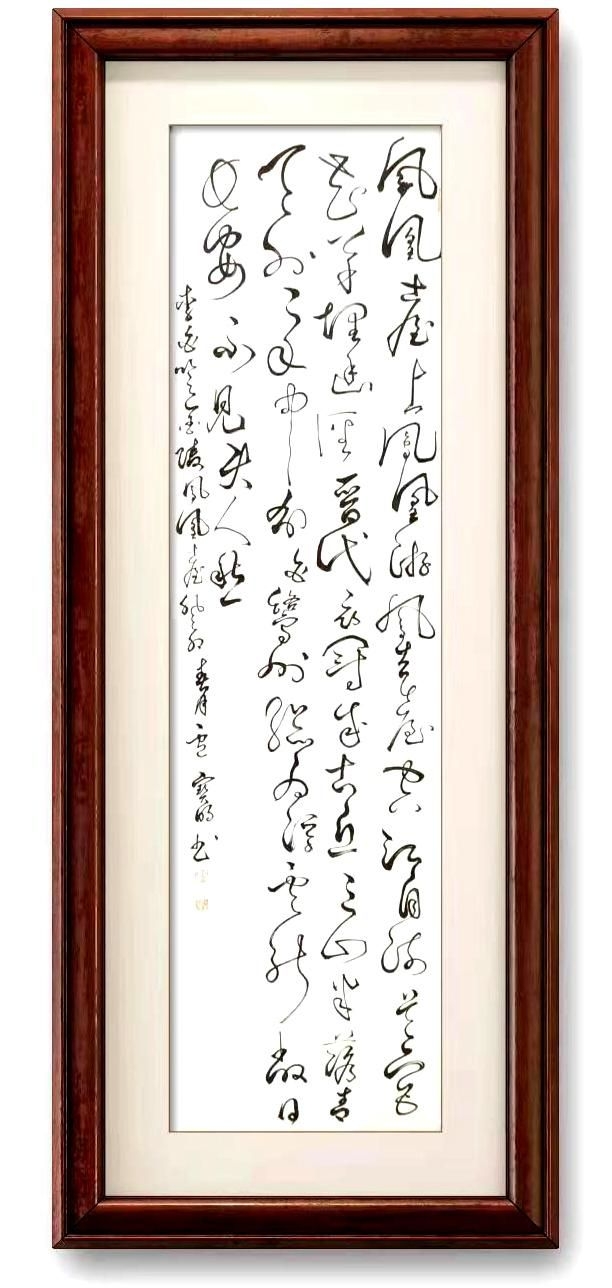 鳳凰臺上鳳凰游鳳去臺空江自流吳宮
花草埋幽徑晉代衣冠成古丘三山半落青
天外二水中分白鷺洲總為浮雲能蔽日
長安不見使人愁
李白金陵鳳凰臺寶明書